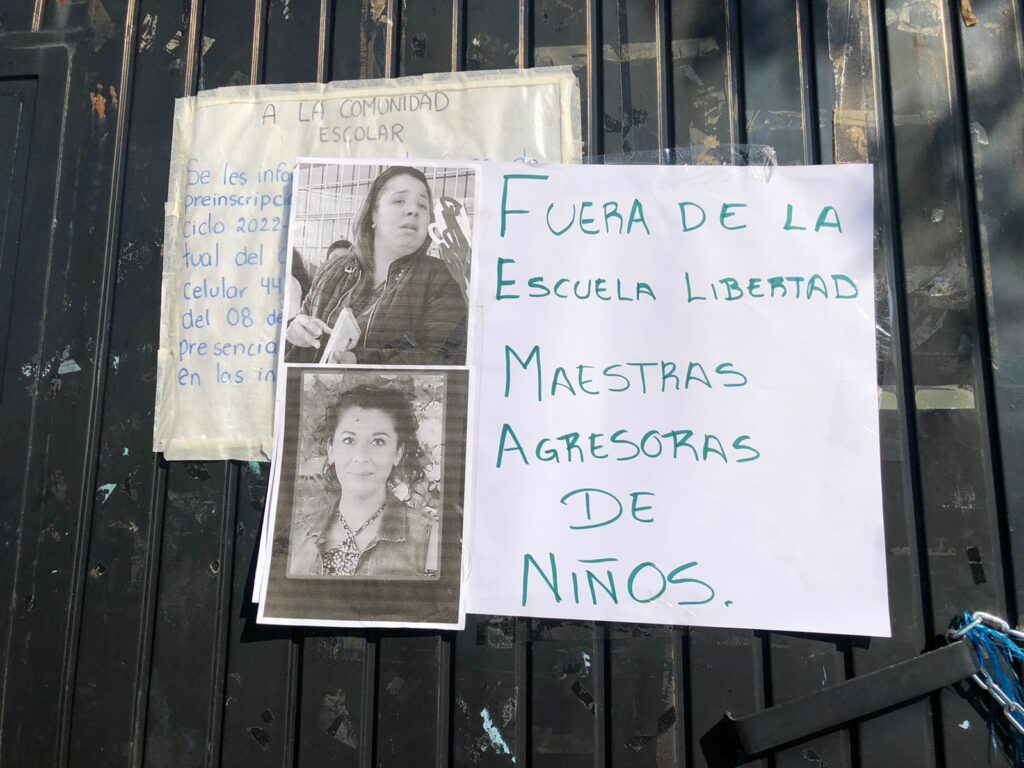 A LA COMUNIDAD
ESCOLAR
Se les
preinscripció
ciclo 2022-
tual del
celular 44
del 08 de
presencia
en las in
FUERA DE LA
ESCUELA LIBERTAD
MAESTRAS
AGRESORAS
DE
NIÑOS.